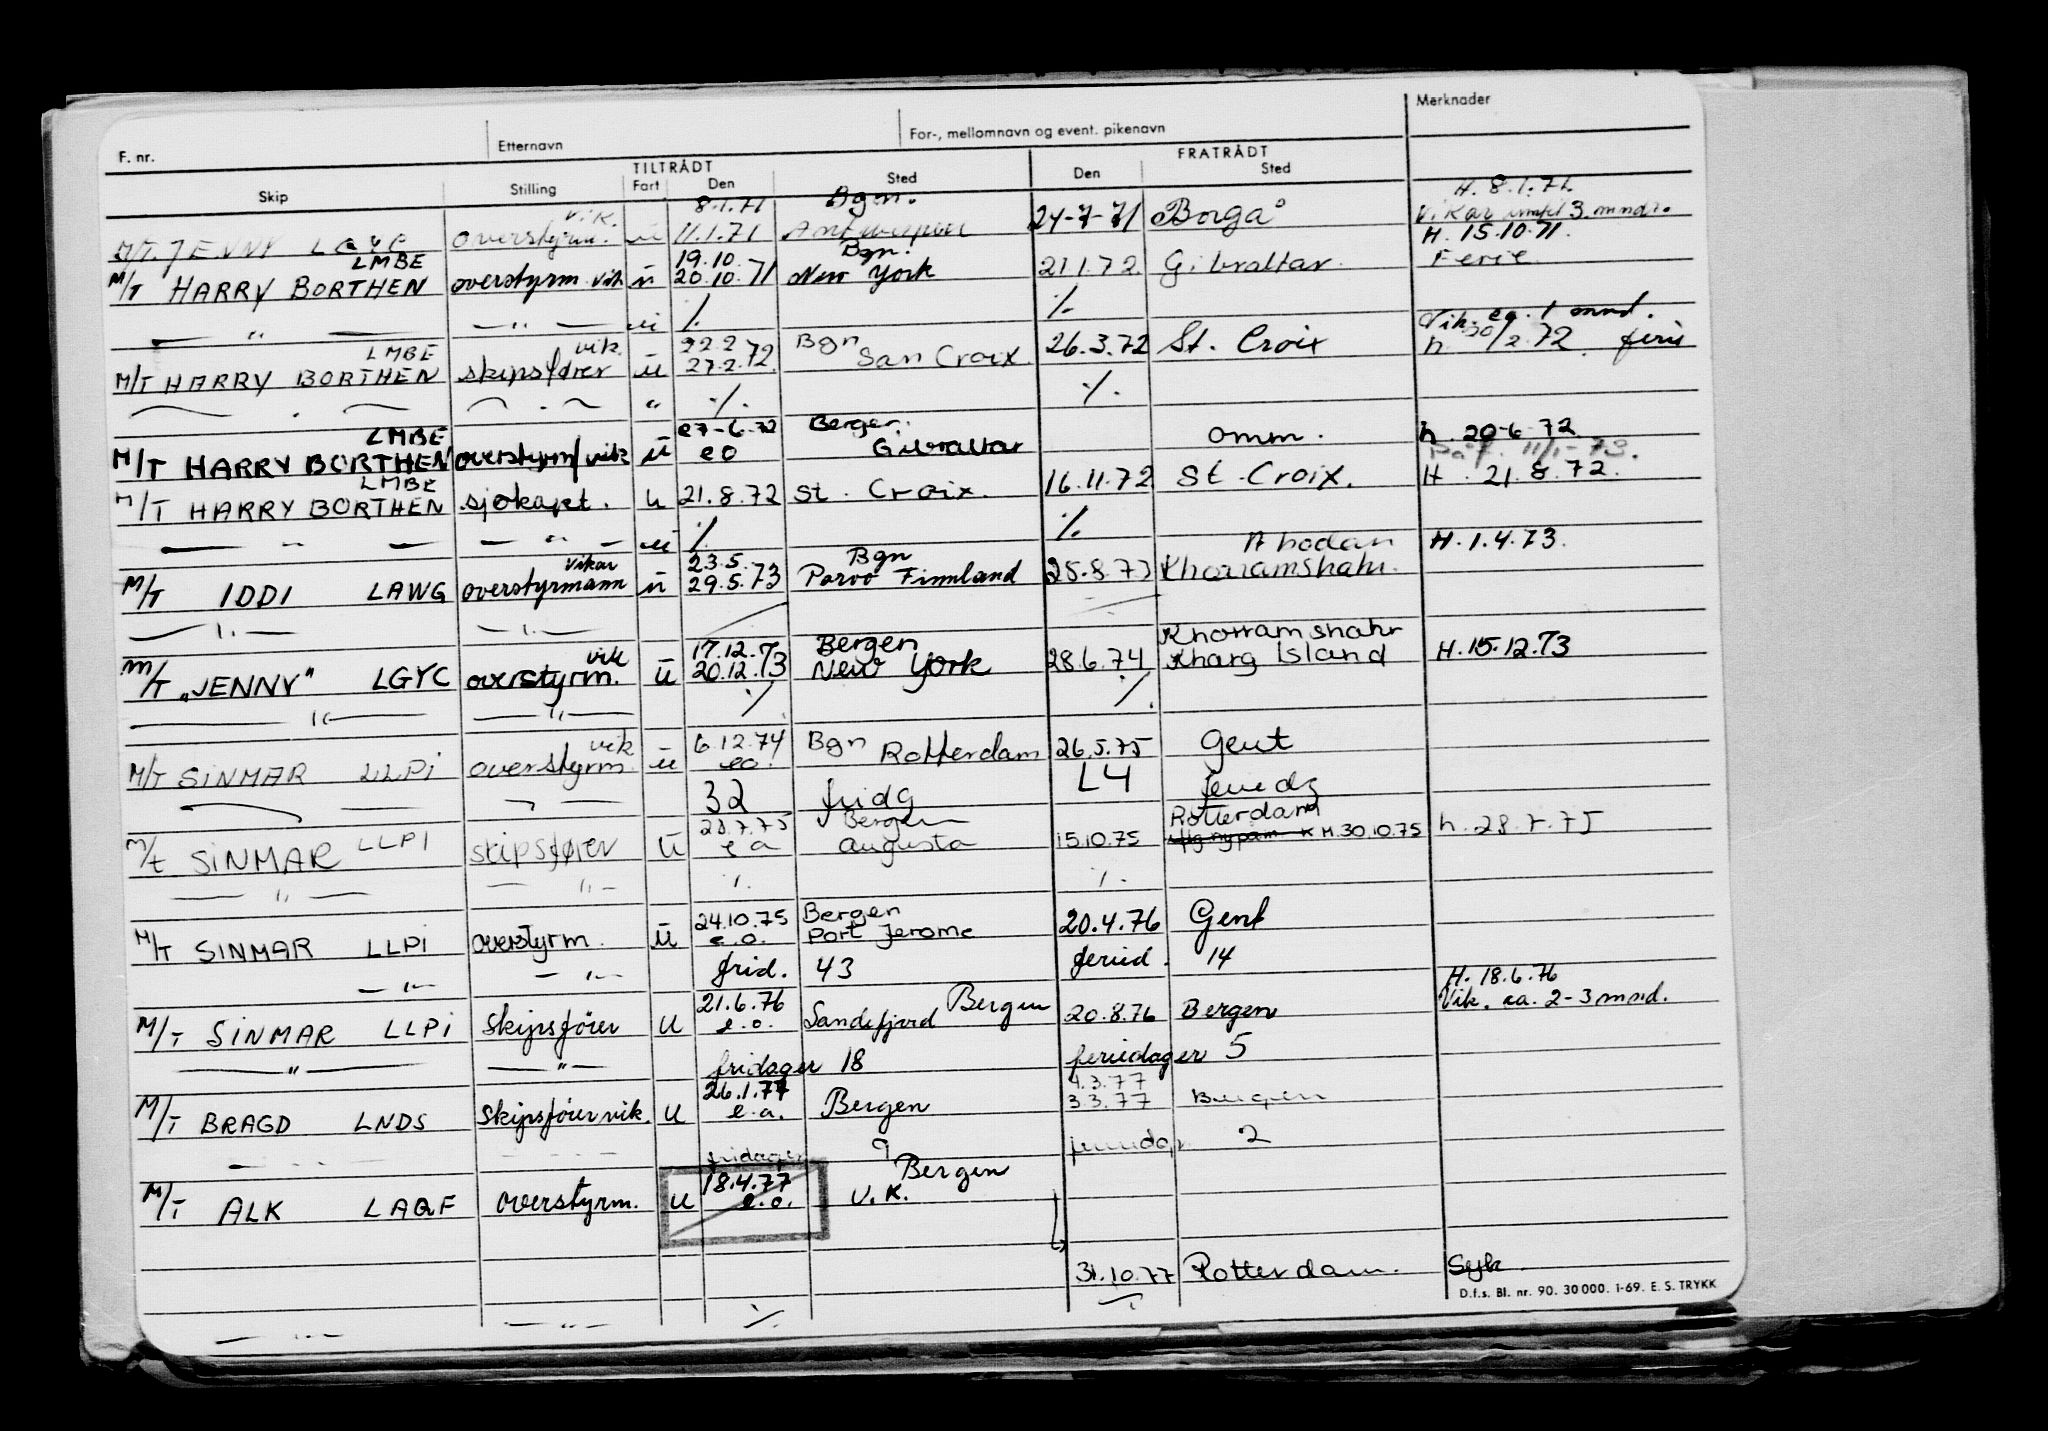 Merknader
F. nr. Etternavn For-, mellomnavn og event. pikenavn
TILTRÅDT FRATRÅDT
Skip Stilling Fart Den Sted Den Sted
vik. 8.1.71 Bgn. H. 8.1.71.
M/T. JENNY overstyrm. ü 11.1.71 Antwerpen 24-7-71 Borgå Vikar 3. mndr.
LMBE 19.10. Bgn. H. 15.10.71.
M/T HARRY BORTHEN overstyrm. vik ü 20.10.71 New York 21.1.72. Gibraltar. Ferie.
— " — — " — ü ./. ./.
LMBE vik. 22.2 Bgn Vik. ca. 1 mnd.
M/T HARRY BORTHEN skipsfører ü 27.2.72. San Croix 26.3.72 St. Croix h. 30/2.72. ferie
" ./. ./.
LMBE 27-6.72 Bergen.
M/T HARRY BORTHEN overstyrm/vik ü eo Gibraltar omm. h. 20-6-72.
11/1-73.
LMBE
M/T HARRY BORTHEN sjøkapt. u 21.8.72 St. Croix. 16.11.72 St. Croix. H. 21.8.72.
— " — — " — ü ./. ./.
vikar 23.5. Bgn Abadan H. 1.4.73.
M/T IDDI LAWG overstyrmann ü 29.5.73 Porvo Finnland 25.8.73 Khorramshahr.
— ". — — ". —
vik 17.12.73 Bergen Khorramshahr
M/T "JENNY" LGYC overstyrm. ü 20.12.73 New York 28.6.74 Kharg Island H. 15.12.73
— " — — " — ./. ./.
vik 6.12.74 Bgn
M/T SINMAR LLPI overstyrm. ü eo. Rotterdam 26.5.75 Gent
32 fridg L4 feriedg
28.7.75 Bergen Rotterdam
M/T SINMAR LLPI skipsfører ü e a Augusta 15.10.75 H. 30.10.75 h. 28.7.75
— " — — " — ./. ./.
24.10.75 Bergen
M/T SINMAR LLPI overstyrm. ü e.o. Port Jerome 20.4.76 Gent
— " — — " — frid. 43 feried. 14
H. 18.6.76
21.6.76 Bergen Vik. ca. 2-3 mnd.
M/T SINMAR LLPI Skipsfører U e.o. Sandefjord 20.8.76 Bergen
— " — — " — fridager 18 feriedager 5
26.1.77 4.3.77
M/T BRAGD LNDS Skipsfører vik. U e.a. Bergen 3.3.77 Bergen
fridager 9 feriedgr 2
18.4.77 Bergen
M/T ALK LAQF overstyrm. U e.o. U.K.
31.10.77 Rotterdam. Syk
D.f.s. Bl. nr. 90. 30 000. 1-69. E. S. TRYKK
— " — — " — ./. ./.